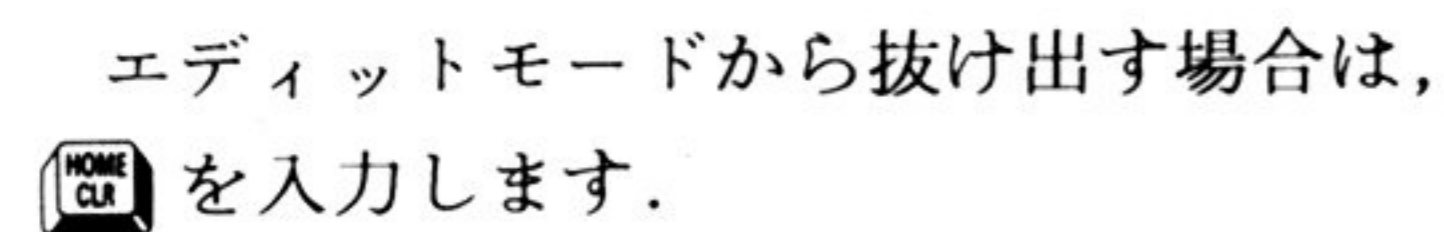 エディットモードから抜け出す場合は，
HOME CLR を入力します．